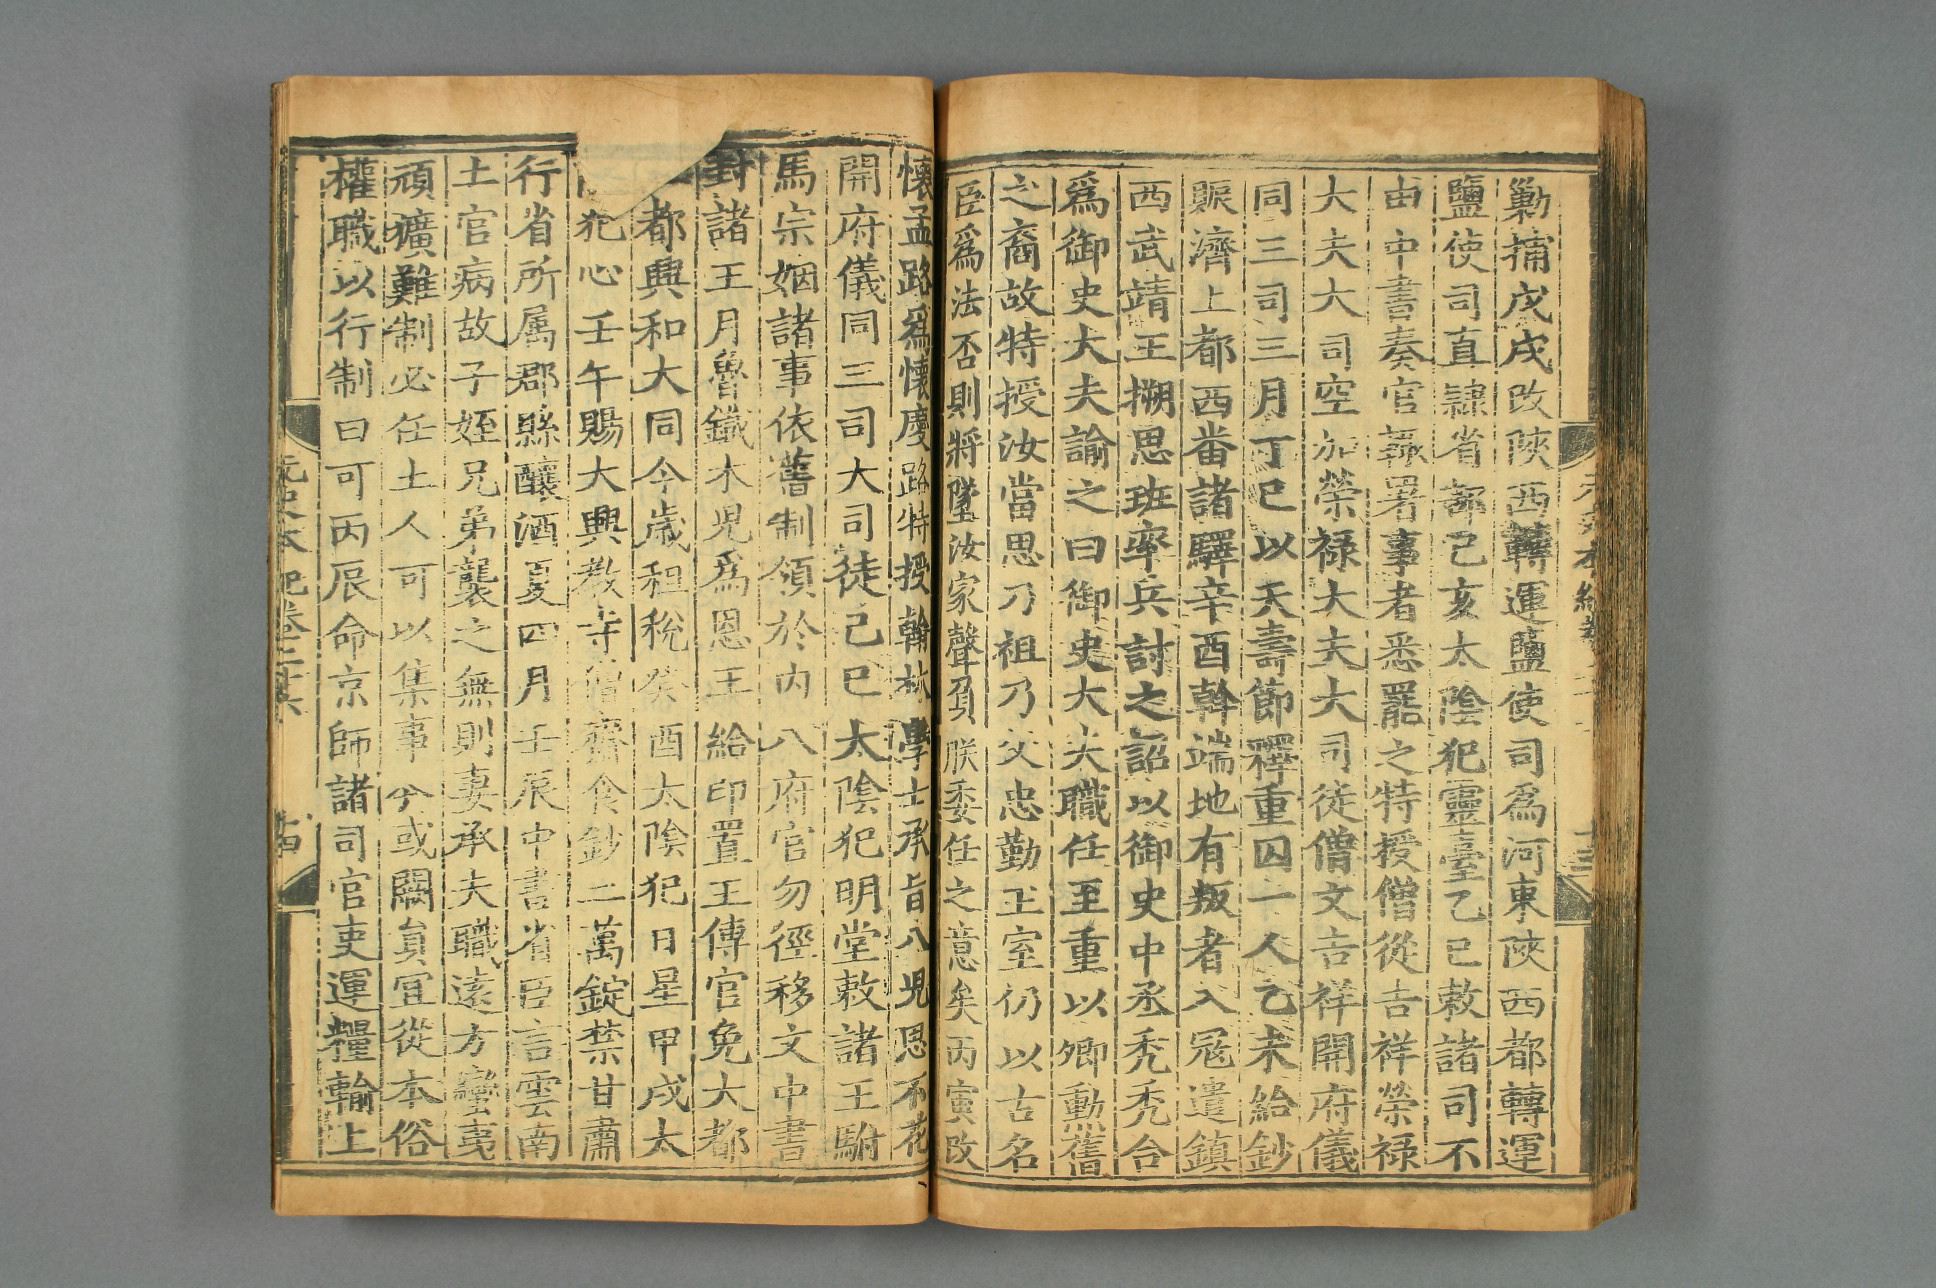 勦捕戊戌改陜西轉運鹽使司爲河東陜西都轉運
鹽使司直隷省部己亥太陰犯靈臺乙巳敕諸司不
由中書奏官輒署事者悉罷之特授僧從吉祥榮祿
大夫大司空加榮祿大夫大司徒僧文吉祥開府儀
同三司三月丁巳以天壽節釋重囚一人乙未給鈔
賑濟上都西畨諸驛辛酉斡端地有叛者入冦遣鎮
西武靖王搠思班率兵討之詔以御史中丞禿禿合
爲御史大夫諭之曰御史大夫職任至重以卿勳舊
之裔故特授汝當思乃祖乃父忠勤王室仍以古名
臣爲法否則將墜汝家聲負朕委任之意矣丙寅改
懷孟路爲懷慶路特授翰林學士承旨八児思不花
開府儀同三司大司徒己巳太陰犯明堂敕諸王駙
馬宗姻諸事依舊制領於内八府官勿徑移文中書
封諸王月魯鐵木児爲恩王給印置王傳官免大都
都興和大同今歳租稅癸酉太陰犯日星甲戌太
犯心壬午賜大興教寺僧齋食鈔二萬錠禁甘肅
行省所属郡縣釀酒夏四月壬辰中書省臣言雲南
土官病故子姪兄弟襲之無則妻承夫職遠方蠻夷
頑獷難制必任土人可以集事今或闕員宜從本俗
權職以行制曰可丙辰命京師諸司官吏運糧輸上
元史本紀卷二十六
十四